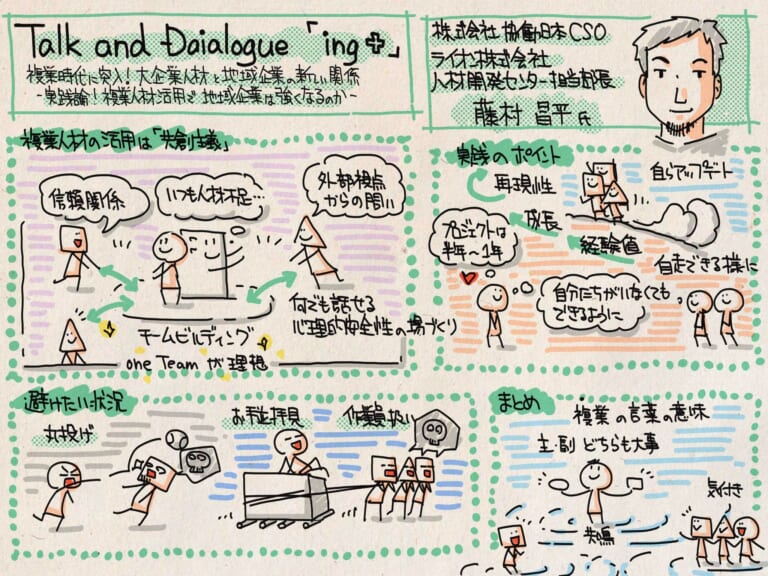 Talk and Daialogue 「ing+」
複業時代に突入!大企業人材と地域企業の新しい関係
-実践論!複業人材活用で地域企業は強くなるのか-
株式会社 協働日本 CSO
ライオン株式会社
人材開発センター担当部長
藤村 昌平 氏
複業人材の活用は「共創主義」
信頼関係
いつも人材不足…
外部視点
からの問い
何でも話せる
心理的安全性の場づくり
チームビルディング
one Team が理想
実践のポイント
再現性
自らアップデート
成長
プロジェクトは
半年〜1年
経験値
自走できる様に
自分たちがいなくても
できるように
避けたい状況
丸投げ
お手並拝見
作業員扱い
まとめ
複業の言葉の意味
主・副 どちらも大事
気付き
共鳴